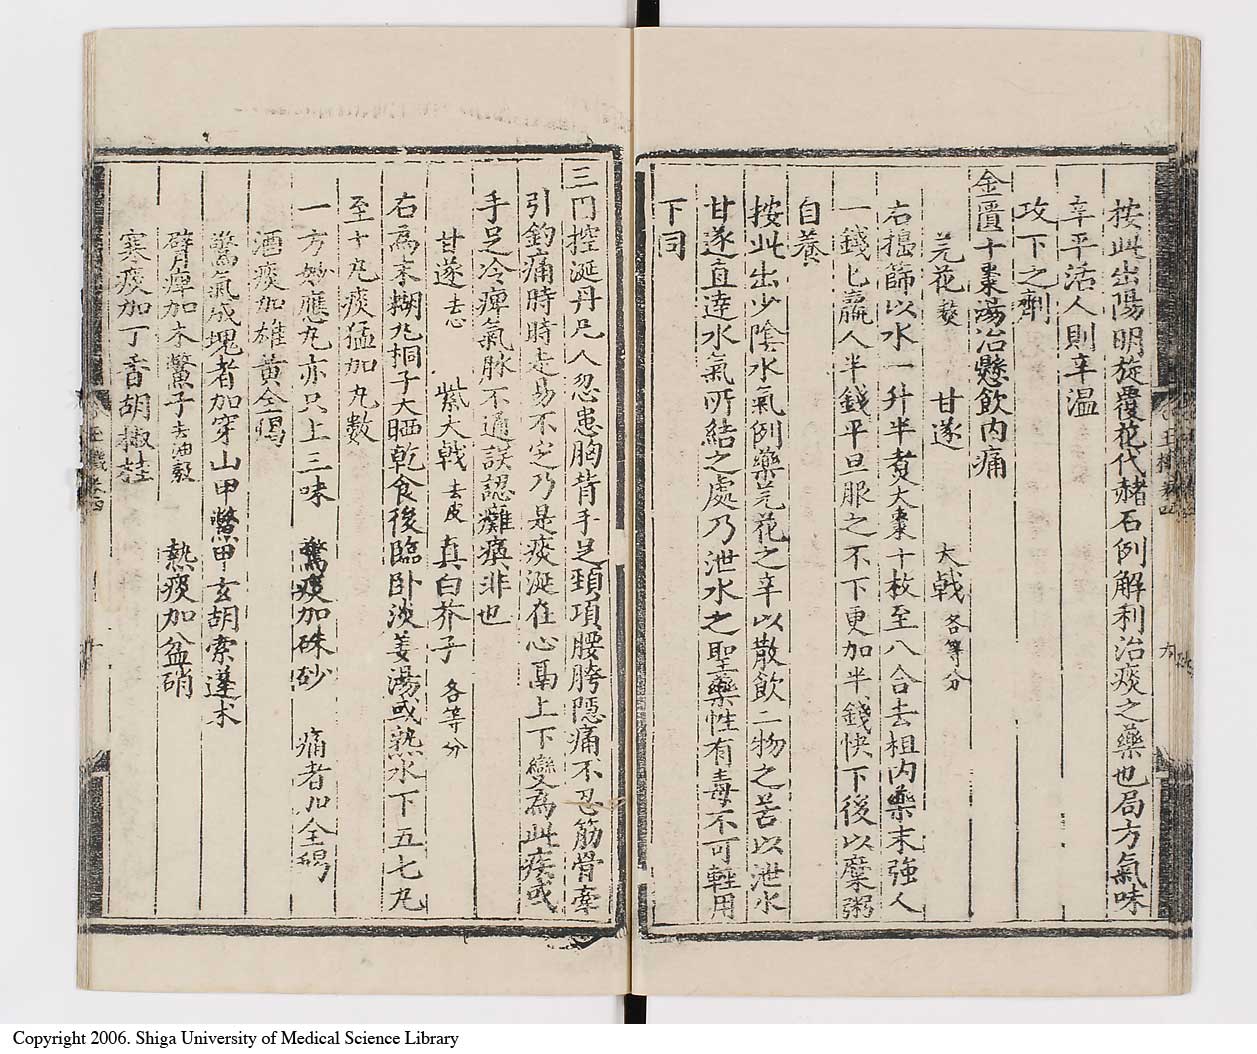 按此出陽明旋覆花代赭石例解利治痰之藥也局方氣味
辛平活人則辛溫
攻下之劑
金匱十棗湯治懸飲內痛
芫花 熬 甘遂 大戟 各等分
右擣篩以水一升半煑大棗十枚至八合去柤內藥末強人
一錢匕羸人半錢平旦服之不下更加半錢快下後以糜粥
自養
按此出少陰水氣例藥芫花之辛以散飲二物之苦以泄水
甘遂直達水氣所結之處乃泄水之聖藥性有毒不可輕用
下同
三因控涎丹凡人忽患胸背手足頸項腰胯隱痛不忍筋骨牽
引釣痛時時走易不定乃是痰涎在心鬲上下變為此疾或
手足冷痺氣脉不通誤認癱瘓非也
甘遂 去心 紫大戟 去皮 真白芥子 各等分
右為末糊丸桐子大晒乾食後臨卧淡姜湯或熟水下五七丸
至十丸痰猛加丸數
一方妙應丸亦只上三味 驚痰加硃砂 痛者加全蝎
酒痰加雄黃全蝎
驚氣成塊者加穿山甲鱉甲玄胡索蓬朮
臂痺加木鱉子 去油殼 熱痰加盆硝
寒痰加丁香胡椒桂
Copyright 2006. Shiga University of Medical Science Library